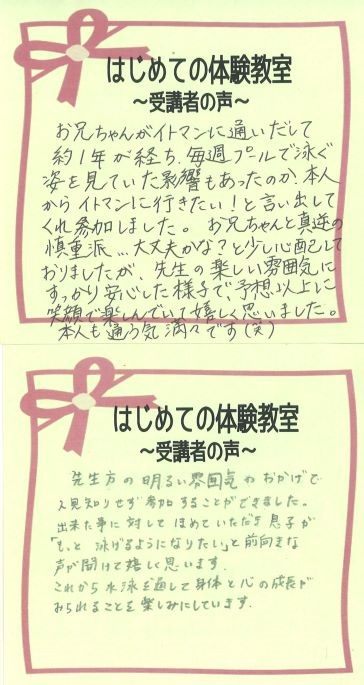 はじめての体験教室
～受講者の声～
お兄ちゃんがイトマンに通いだして
約1年が経ち、毎週プールで泳ぐ
姿を見ていた影響もあったのか、本人
からイトマンに行きたい！と言い出して
くれ参加しました。お兄ちゃんと真逆の
慎重派…大丈夫かな？と少し心配して
おりましたが、先生の楽しい雰囲気に
すっかり安心した様子で、予想以上に
笑顔で楽しんでいて嬉しく思いました。
本人も通う気満々です（笑）
はじめての体験教室
～受講者の声～
先生方の明るい雰囲気のおかげで
人見知りせず参加することができました。
出来た事に対してほめていただき息子が
「もっと泳げるようになりたい」と前向きな
声が聞けて嬉しく思います。
これから水泳を通して身体と心の成長が
みられることを楽しみにしています。